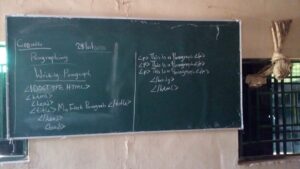 Paragraphing
Writing Paragraph
<!DOCTYPE HTML>
<html>
<head>
<title> My First Paragraph </title>
</head>
<body>
<p> This Is a Paragraph </p>
<p> This Is a Paragraph </p>
<p> This Is a Paragraph </p>
</body>
</html>